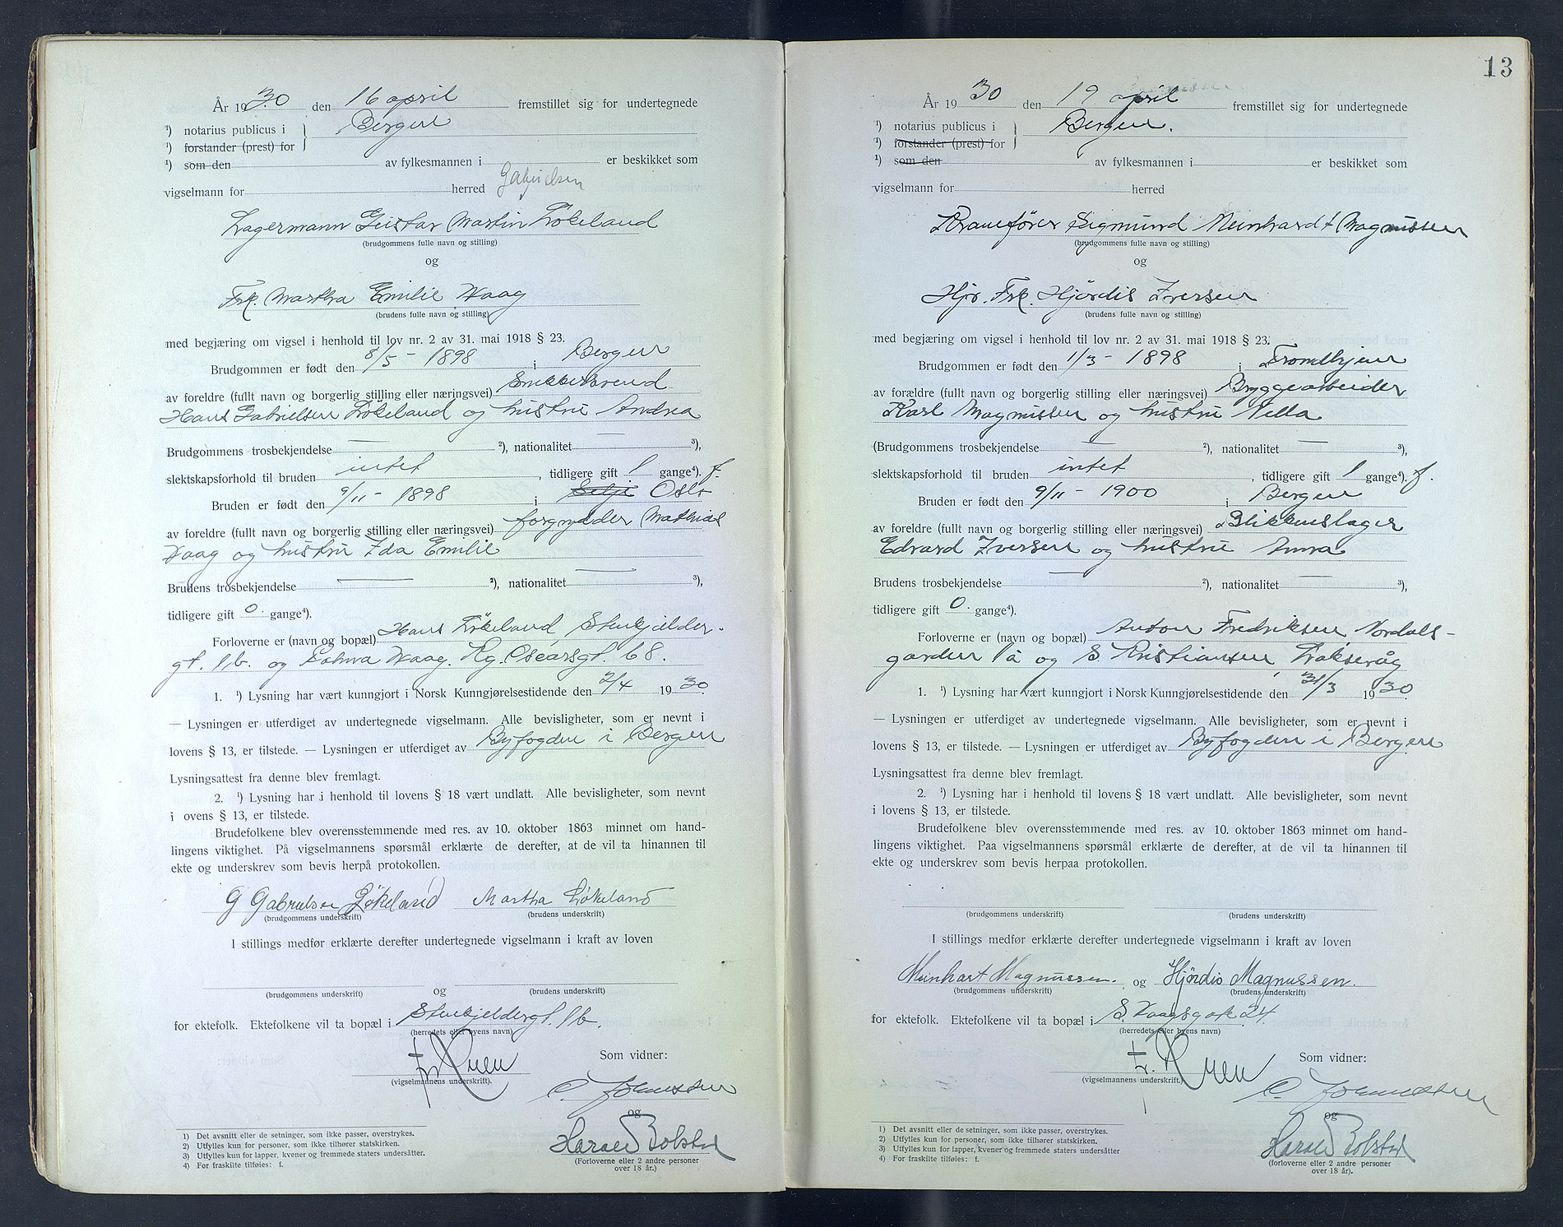 År 1930 den 16 april fremstillet sig for undertegnede
¹) notarius publicus i Bergen
¹) forstander (prest) for
¹) som den av fylkesmannen i er beskikket som
vigselmann for herred Gabrielsen
Lagermann Gustav Martin Løkeland
(brudgommens fulle navn og stilling)
og
Frk. Martha Emilie Waag
(brudens fulle navn og stilling)
med begjæring om vigsel i henhold til lov nr. 2 av 31. mai 1918 § 23.
Brudgommen er født den 8/5 - 1898 i Bergen
av foreldre (fullt navn og borgerlig stilling eller næringsvei) Snekkersvend
Hans Gabrielsen Løkeland og hustru Andrea
Brudgommens trosbekjendelse — ²), nationalitet — ³),
slektskapsforhold til bruden intet, tidligere gift 1 gange⁴). f.
Bruden er født den 9/11 - 1898 i Selje Oslo
av foreldre (fullt navn og borgerlig stilling eller næringsvei) forgylder Mathias
Waag og hustru Ida Emilie
Brudens trosbekjendelse — ²), nationalitet — ³),
tidligere gift 0. gange⁴).
Forloverne er (navn og bopæl) Hans Løkeland
gt. 1b. og Waag. Kg. Oscarsgt. 68.
1. ¹) Lysning har vært kunngjort i Norsk Kunngjørelsestidende den 2/4 1930.
— Lysningen er utferdiget av undertegnede vigselmann. Alle bevisligheter, som er nevnt i
lovens § 13, er tilstede. — Lysningen er utferdiget av Byfogden i Bergen
Lysningsattest fra denne blev fremlagt.
2. ¹) Lysning har i henhold til lovens § 18 vært undlatt. Alle bevisligheter, som nevnt
i ovens § 13, er tilstede.
Brudefolkene blev overensstemmende med res. av 10. oktober 1863 minnet om hand-
lingens viktighet. På vigselmannens spørsmål erklærte de derefter, at de vil ta hinannen til
ekte og underskrev som bevis herpå protokollen.
G Gabrielsen Løkeland Martha Løkeland
(brudgommens underskrift) (brudens underskrift)
I stillings medfør erklærte derefter undertegnede vigselmann i kraft av loven
og
(brudgommens underskrift) (brudens underskrift)
for ektefolk. Ektefolkene vil ta bopæl i 1b.
(herredets eller byens navn)
Som vidner:
(vigselmannens underskrift).
C. Johannessen
og
Harald Bolstad
(Forloverne eller 2 andre personer
over 18 år).
1) Det avsnitt eller de setninger, som ikke passer, overstrykes.
2) Utfylles kun for personer, som ikke tilhører statskirken.
3) Utfylles kun for lapper, kvener og fremmede staters undersåtter.
4) For fraskilte tilføies: f.
13
År 1930 den 19 april fremstillet sig for undertegnede
¹) notarius publicus i Bergen.
¹) forstander (prest) for
¹) som den av fylkesmannen i er beskikket som
vigselmann for herred
Kranefører Sigmund Meinhardt Magnussen
(brudgommens fulle navn og stilling)
og
Frk. Hjørdis Iversen
(brudens fulle navn og stilling)
med begjæring om vigsel i henhold til lov nr. 2 av 31. mai 1918 § 23.
Brudgommen er født den 1/3 - 1898 i Trondhjem
av forældre (fullt navn og borgerlig stilling eller næringsvei) Bryggearbeider
Karl Magnussen og hustru Nella
(Brudgommens trosbekjendelse — ²), nationalitet — ³),
slektskapsforhold til bruden intet, tidligere gift 1 gange⁴). f.
Bruden er født den 9/11 - 1900 i Bergen
av foreldre (fullt navn og borgerlig stilling eller næringsvei) Blikkenslager
Edvard Iversen og hustru Anna
Brudens trosbekjendelse — ²), nationalitet — ³),
tidligere gift 0. gange⁴).
Forloverne er (navn og bopæl) Anton Fredriksen Nordals-
garden 1a og S. Kristiansen Laksevåg
1. ¹) Lysning har vært kunngjort i Norsk Kunngjørelsestidende den 31/3 1930.
— Lysningen er utferdiget av undertegnede vigselmann. Alle bevisligheter, som er nevnt i
lovens § 13, er tilstede. — Lysningen er utferdiget av Byfogden i Bergen
Lysningsattest fra denne blev fremlagt.
2. ¹) Lysning har i henhold til lovens § 18 vært undlatt. Alle bevisligheter, som nevnt
i lovens § 13, er tilstede.
Brudefolkene blev overensstemmende med res. av 10. oktober 1863 minnet om hand-
lingens viktighet. Paa vigselmannens spørsmål erklærte de derefter, at de vil ta hinannen til
ekte og underskrev som bevis herpaa protokollen.
(brudgommens underskrift) (brudens underskrift)
I stillings medfør erklærte derefter undertegnede vigselmann i kraft av loven
Meinhart Magnussen. og Hjørdis Magnussen.
(brudgommens underskrift) (brudens underskrift)
for ektefolk. Ektefolkene vil ta bopæl i 24.
(herredets eller byens navn)
Som vidner:
(vigselmannens underskrift).
C. Johannessen
og
Harald Bolstad
(forloverne eller 2 andre personer
over 18 år).
1) Det avsnitt eller de setninger, som ikke passer, overstrykes.
2) Utfylles kun for personer, som ikke tilhører statskirken.
3) Utfylles kun for lapper, kvener og fremmede staters undersåtter
4) For fraskilte tilføies: f.